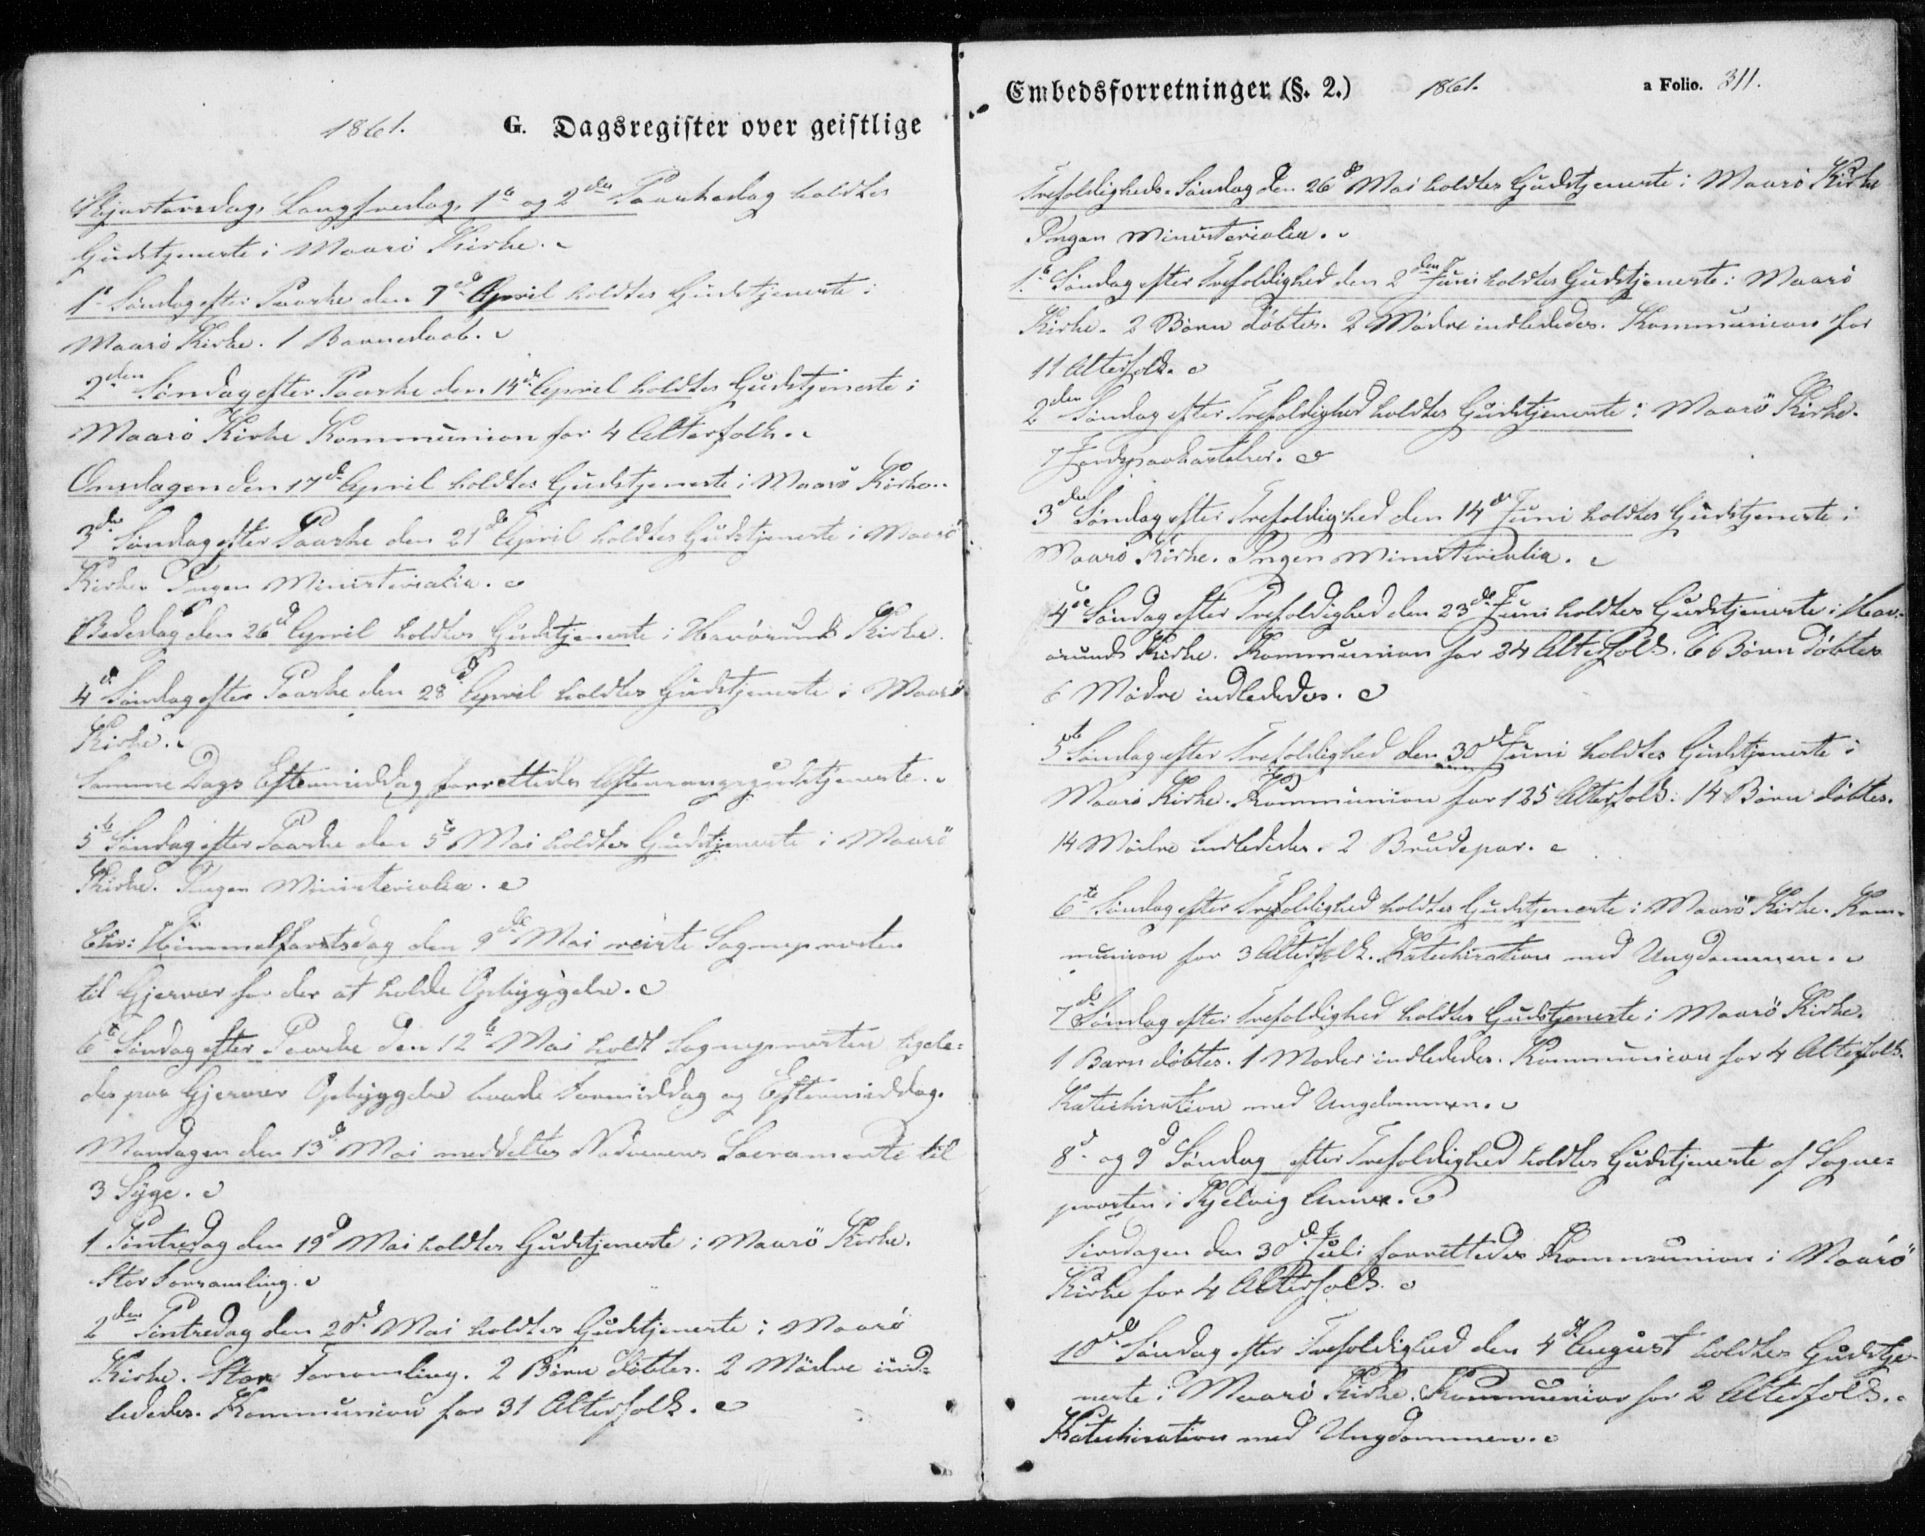 1861. G. Dagsregister over geistlige
Skjærtorsdag, Langfredag, 1ste og 2den Paaskedag holdtes
Gudstjeneste i Maasö Kirke.
1ste Søndag efter Paaske den 7de April holdtes Gudstjeneste i
Maasö Kirke. 1 Barnedaab.
2den Søndag efter Paaske den 14de April holdtes Gudstjeneste i
Maasö Kirke Kommunion for 4 Altersfolk.
Onsdagen den 17de April holdtes Gudstjeneste i Maasö Kirke.
3die Søndag efter Paaske den 21de April holdtes Gudstjeneste i Maasö
Kirke. Ingen Ministerialia.
Bededag den 26de April holdtes Gudstjeneste i Havösunds Kirke.
4de Søndag efter Paaske den 28de April holdtes Gudstjeneste i Maasö
Kirke.
Samme Dags Eftermiddag forrettedes Aftensangsgudstjeneste.
5te Søndag efter Paaske den 5te Mai holdtes Gudstjeneste i Maasö
Kirke. Ingen Ministerialia.
Chr: Himmelfartsdag den 9de Mai reiste Sognepresten
til Gjesvær for der at holde Opbyggelse.
6te Søndag efter Paaske den 12te Mai holdt Sognepresten ligele-
des paa Gjesvær Opbyggelse baade Formiddag og Eftermiddag.
Mandagen den 13de Mai meddeltes Nadverens Sacramente til
3 Syge.
1 Pintsedag den 19de Mai holdtes Gudstjeneste i Maasö Kirke.
Stor Forsamling.
2den Pintsedag den 20de Mai holdtes Gudstjeneste i Maasö
Kirke. Stor Forsamling. 2 Børn døbtes. 2 Mødre ind-
lededes. Kommunion for 31 Altersfolk.
Embedsforretninger (§. 2.) 1861. a Folio. 311.
Trefoldigheds-Søndag den 26de Mai holdtes Gudstjeneste i Maasö Kirke
Ingen Ministerialia.
1ste Søndag efter Trefoldighed den 2den Juni holdtes Gudstjeneste i Maasö
Kirke. 2 Børn døbtes. 2 Mødre indlededes. Kommunion for
11 Altersfolk.
2den Søndag efter Trefoldighed holdtes Gudstjeneste i Maasö Kirke.
7
3die Søndag efter Trefoldighed den 14de Juni holdtes Gudstjeneste i
Maasö Kirke. Ingen Ministerialia.
4de Søndag efter Trefoldighed den 23de Juni holdtes Gudstjeneste i Hav-
øsunds Kirke. Kommunion for 24 Altersfolk. 6 Børn døbtes
6 Mødre indlededes.
5te Søndag efter Trefoldighed den 30de Juni holdtes Gudstjeneste i
Maasö Kirke. Kommunion for 125 Altersfolk: 14 Børn døbtes.
14 Mødre indlededes. 2 Brudepar.
6te Søndag efter Trefoldighed holdtes Gudstjeneste i Maasö Kirke. Kom-
munion for 3 Altersfolk. Katechisation med Ungdommen.
7de Søndag efter Trefoldighed holdtes Gudstjeneste i Maasö Kirke.
1 Barn døbtes. 1 Moder indlededes. Kommunion for 4 Altersfolk.
Katechisation med Ungdommen.
8de og 9de Søndag efter Trefoldighed holdtes Gudstjeneste af Sogne-
presten i Kjelvig Annex.
Tirsdagen den 30de Juli forrettedes Kommunion i Maasö
Kirke for 4 Altersfolk.
10de Søndag efter Trefoldighed den 4de August holdtes Gudstje-
neste i Maasö Kirke. Kommunion for 2 Altersfolk.
Katechisation med Ungdommen.